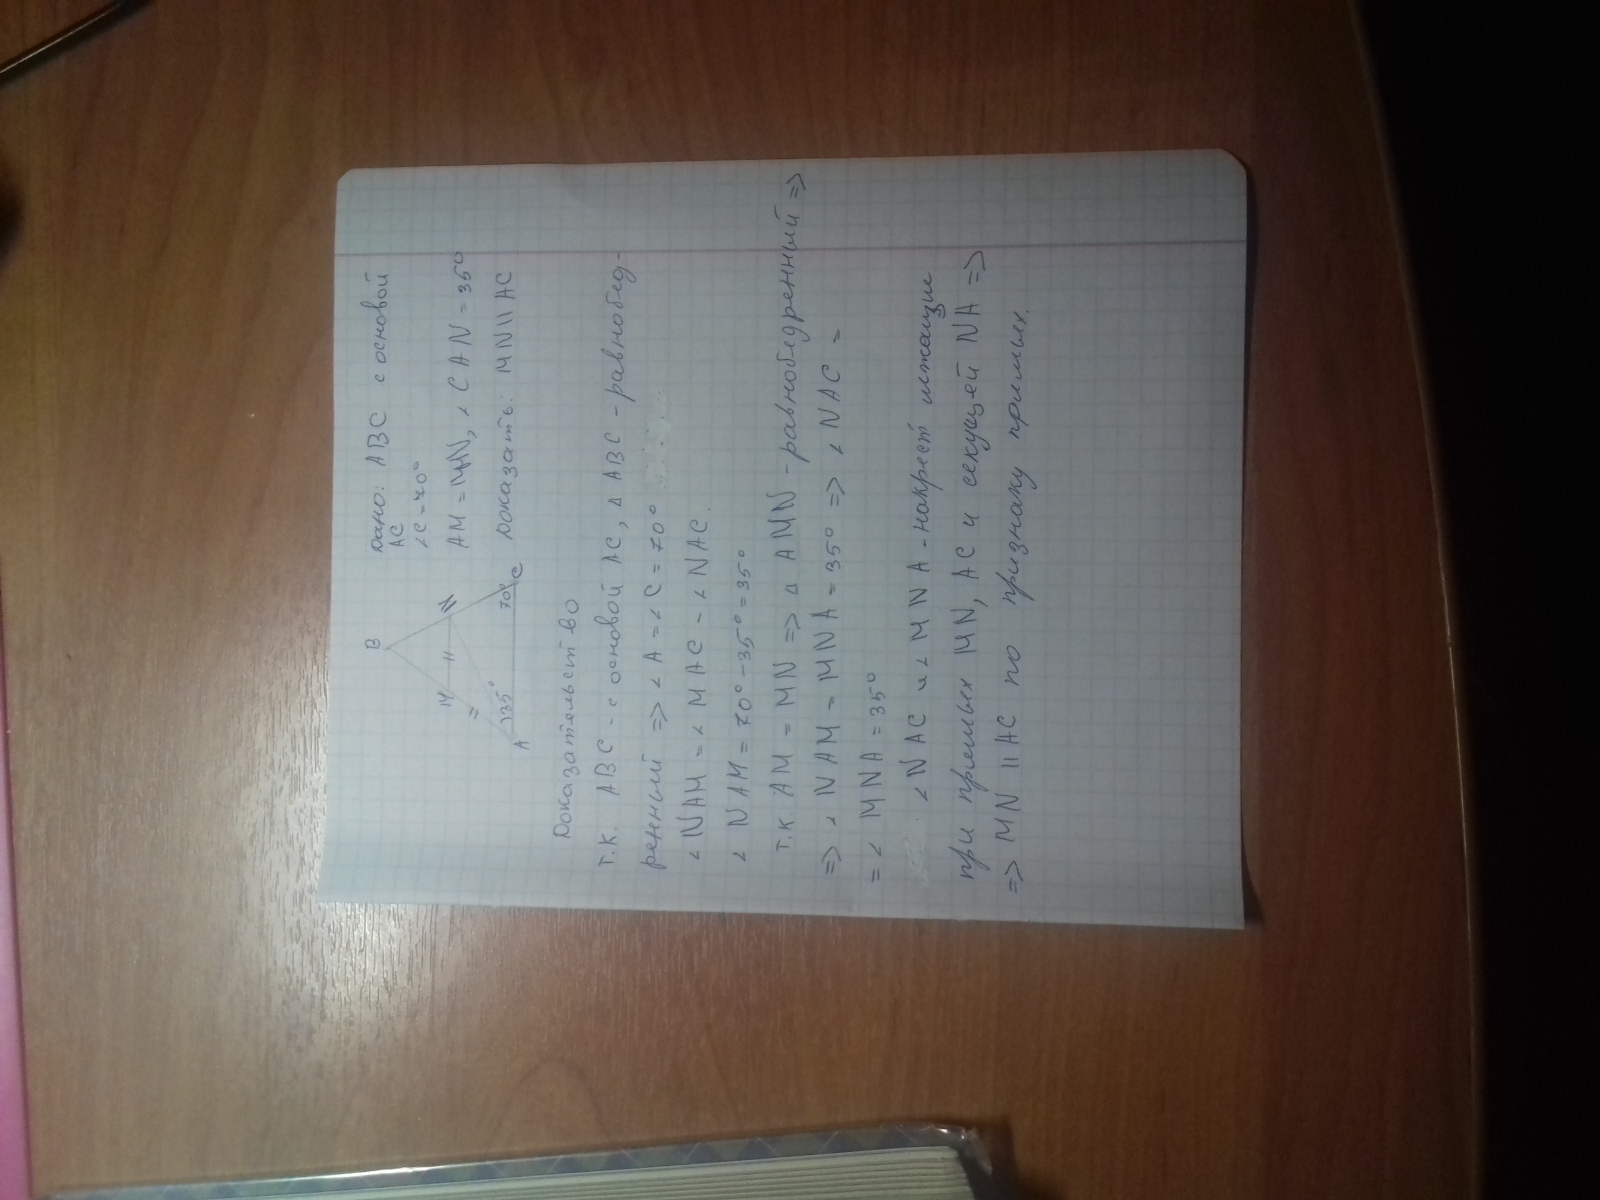 B
M
N
A
35°
70°
C
Дано: ABC с основой
AC
∠C = 70°
AM = MN, ∠CAN = 35°
Доказать: MN || AC
Доказательство
Т.К. ABC - с основой AC, △ABC - равнобед-
ренный => ∠A = ∠C = 70°
∠NAM = ∠MAC - ∠NAC.
∠NAM = 70° - 35° = 35°
Т.К. AM = MN => △AMN - равнобедренный =>
=> ∠NAM = MNA = 35° => ∠NAC =
= ∠MNA = 35°
∠NAC и ∠MNA - накрест лежащие
при прямых MN, AC и секущей NA =>
=> MN || AC по признаку прямых.